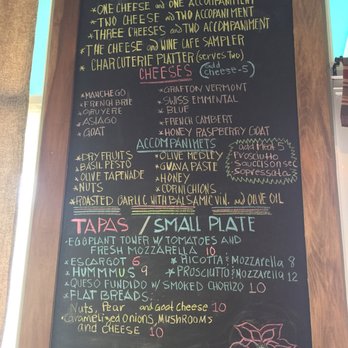 *ONE CHEESE AND ONE ACCOMPANIMENT
*TWO CHEESE AND TWO ACCOPANIMENT
*THREE CHEESES AND TWO ACCOMPANIMENT
*THE CHEESE AND WINE CAFE SAMPLER
*CHARCUTERIE PLATTER (serves Two)
CHEESES (add cheese-5)
*MANCHEGO *GRAFTON VERMONT
*FRENCH BRIE *SWISS EMMENTAL
*GRUYERE *BLUE
*ASIAGO *FRENCH CAMBERT
*GOAT *HONEY RASPBERRY GOAT
ACCOMPANIMETS
*DRY FRUITS *OLIVE MEDLEY
*BASIL PESTO *GUAVA PASTE
*OLIVE TAPENADE *HONEY
*NUTS *CORNICHONS
add Meat 5
Prosciutto
Saucisson sec
Sopressata
*ROASTED GARLIC WITH BALSAMIC VIN. AND OLIVE OIL
TAPAS / SMALL PLATE
*EGGPLANT TOWER W/ TOMATOES AND
FRESH MOZZARELLA 10
*ESCARGOT 6 *RICOTTA & MOZZARELLA 8
*HUMMMUS 9 *PROSCIUTTO & MOZZARELLA 12
*QUESO FUNDIDO W/ SMOKED CHORIZO 10
*FLAT BREADS:
Nuts, Pear and Goat Cheese 10
*Caramelized Onions, Mushrooms
and CHEESE 10